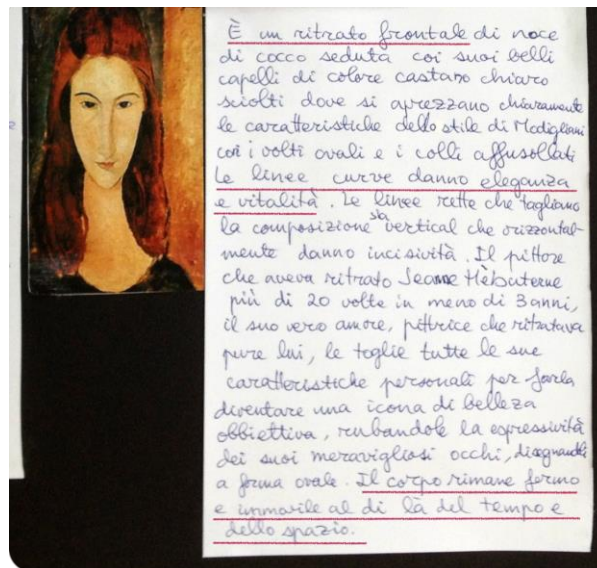 È un ritratto frontale di noce
di cocco seduta coi suoi belli
capelli di colore castano chiaro
sciolti dove si aprezzano chiaramente
le caratteristiche dello stile di Modigliani
con i volti ovali e i colli affusollati
Le linee curve danno eleganza
e vitalità. Le linee rette che tagliano
la composizione sia vertical che orizzontal-
mente danno incisività. Il pittore
che aveva ritrato Jeanne Hèbuterne
più di 20 volte in meno di 3 anni,
il suo vero amore, pittrice che ritratava
pure lui, le toglie tutte le sue
caratteristiche personali per farla
diventare una icona di belleza
obbiettiva, rubandole la espressività
dei suoi meravigliosi occhi, disegnandoli
a forma ovale. Il corpo rimane fermo
e immovile al di là del tempo e
dello spazio.